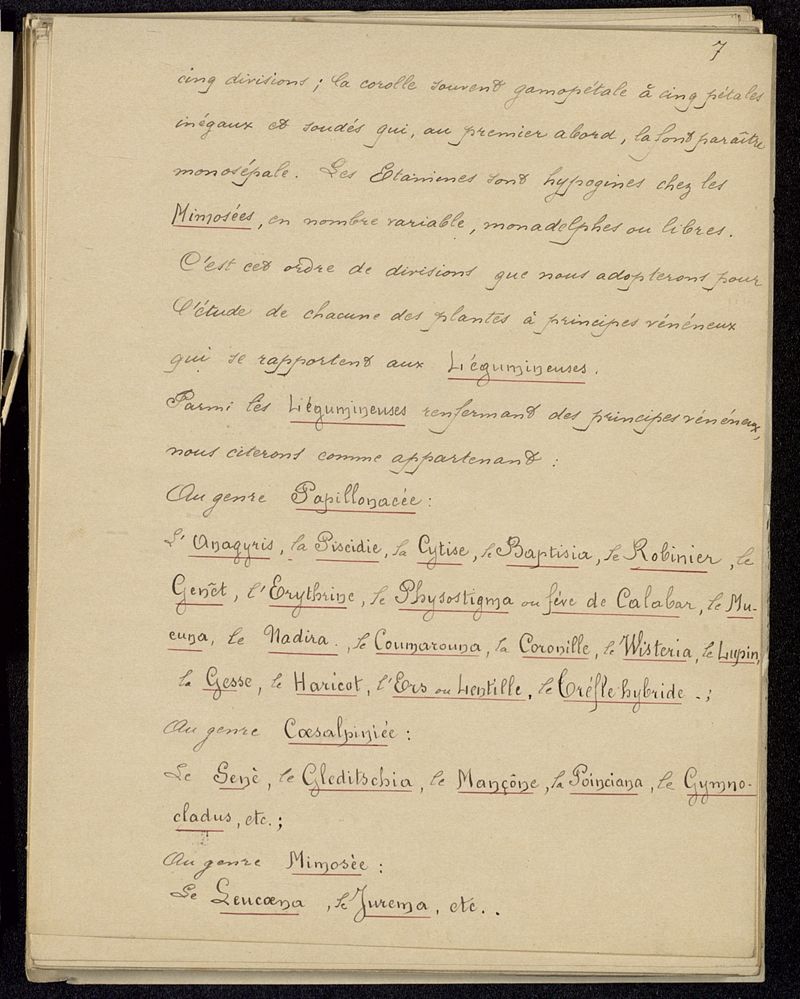 7
cinq divisions ; la corolle souvent gamopétale à cinq pétales
inégaux et soudés qui, au premier abord, la font paraître
monosépale. Les Etamines sont hypogines chez les
Mimosées, en nombre variable, monadelphes ou libres.
C'est cet ordre de divisions que nous adopterons pour
l'étude de chacune des plantes à principes vénéneux
qui se rapportent aux Légumineuses.
Parmi les Légumineuses renfermant des principes vénéneux,
nous citerons comme appartenant :
Au genre Papillonacée :
L'Anagyris, la Piscidie, la Cytise, le Baptisia, le Robinier, le
Genêt, l'Erythrine, le Physostigma ou fève de Calabar, le Mu-
cuna, le Nadira, le Coumarouna, la Coronille, le Wisteria, le Lupin,
la Gesse, le Haricot, l'Ers ou Lentille, le Tréfle hybride - ;
Au genre Cœsalpiniée :
Le Senè, le Gleditschia, le Mançône, la Poinciana, le Gymno-
cladus, etc. ;
Au genre Mimosèe :
Le Leucœna, le Jurema, etc..